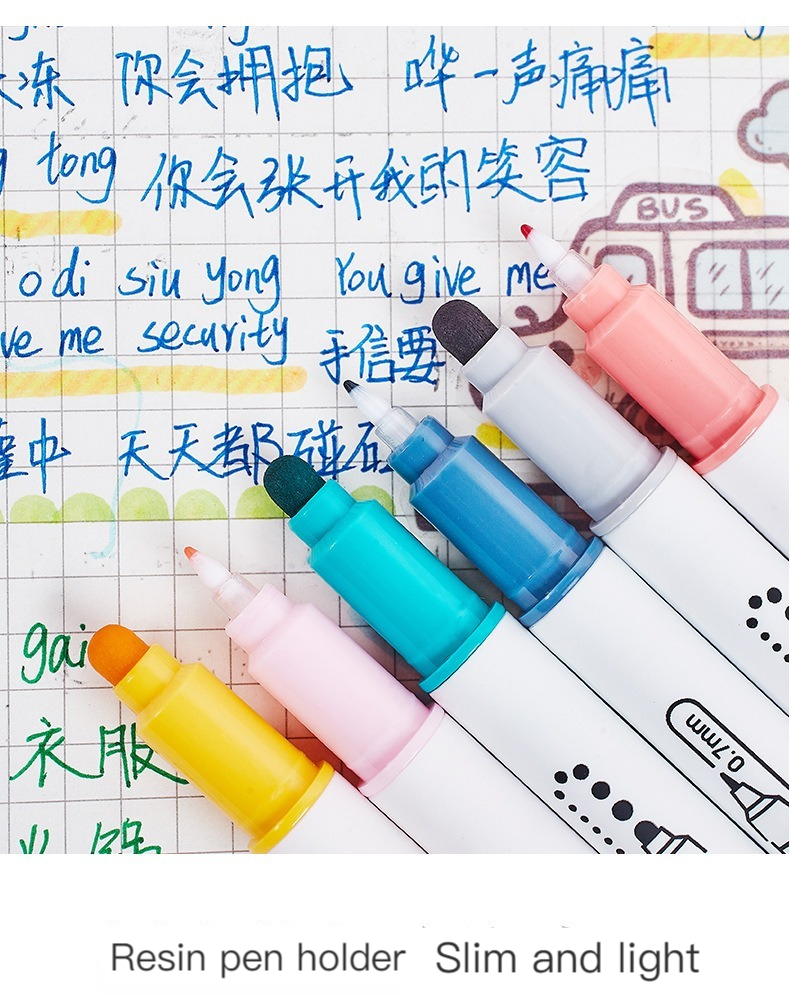 冻 你会拥抱 哗一声痛痛
tong 你会张开我的笑容
BUS
o di siu yong You give me
ve me security 手信要
中 天天都碰
gai
衣服
火锅
0.7mm
Resin pen holder Slim and light